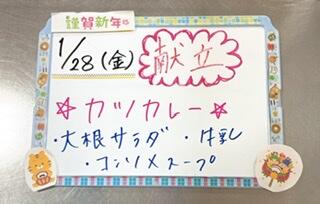 謹賀新年
1/28(金) 献立
☆カツカレー☆
・大根サラダ ・牛乳
・コンソメスープ